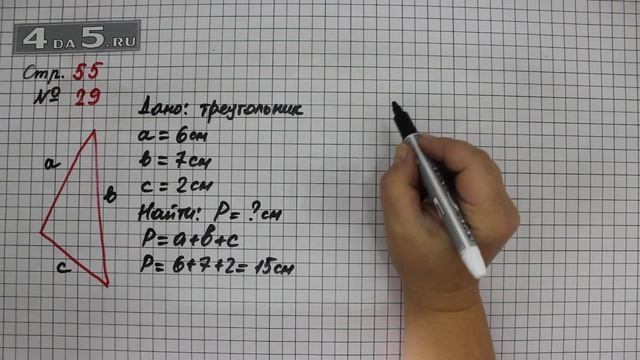 4 DA 5.RU
Стр. 55
№ 29
Дано: треугольник
a = 6 см
в = 7 см
c = 2 см
Найти: P = ? см
P = a + в + c
P = 6 + 7 + 2 = 15 см
a
в
c